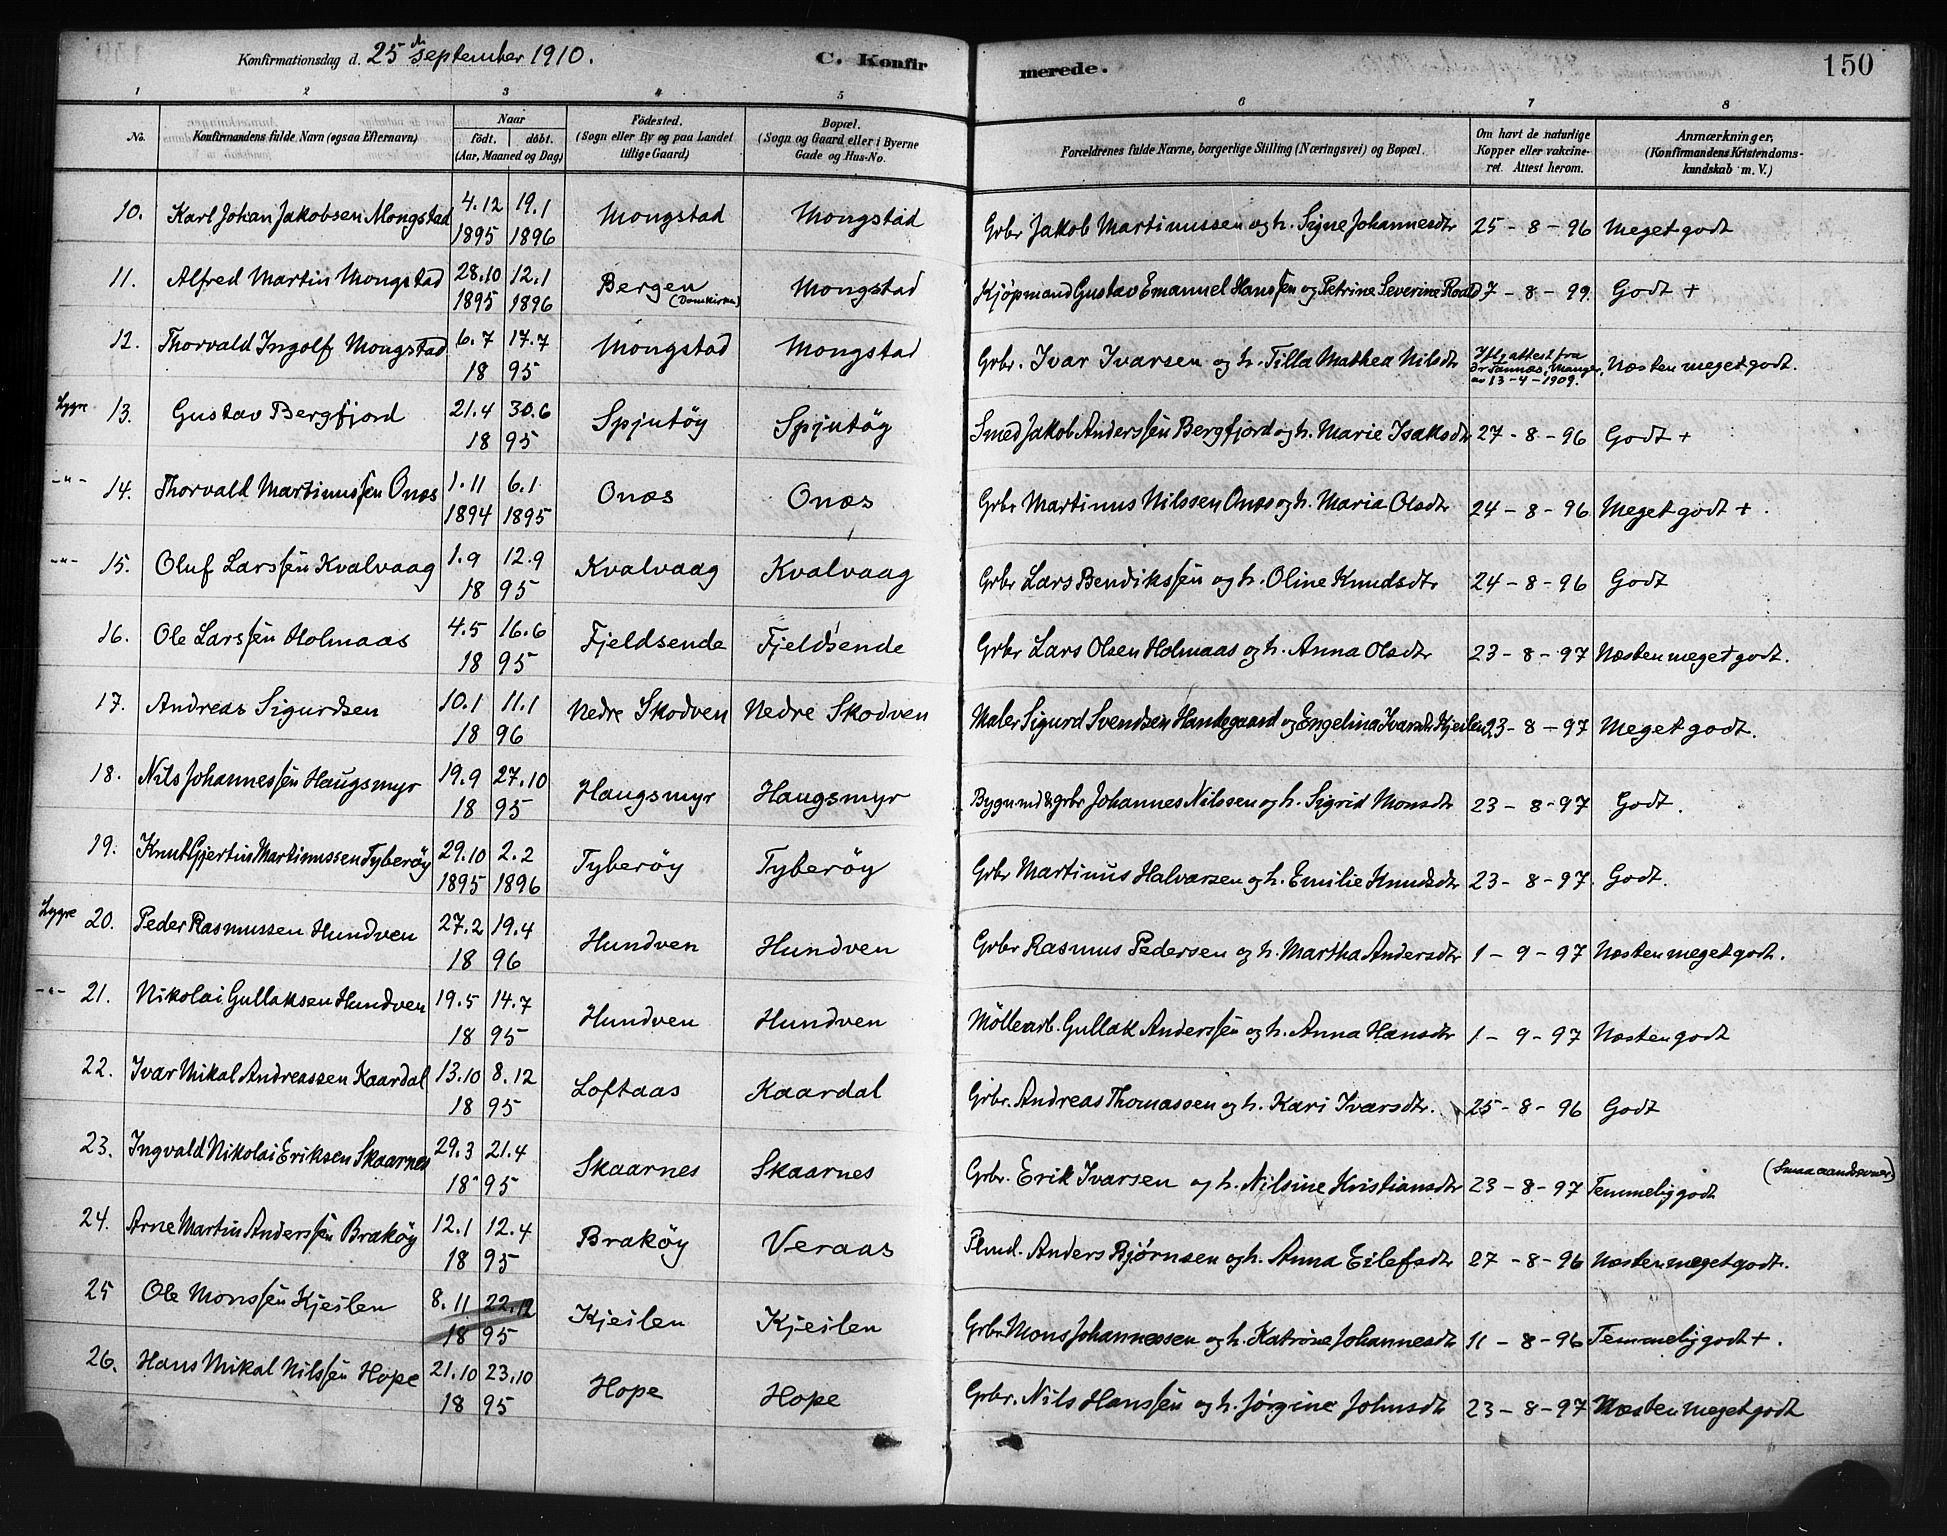 Konfirmationsdag d. 25 de september 1910.
C. Konfirmerede.
150
1 2 3 4 5 6 7 8
No.
Konfirmandens fulde Navn (ogsaa Efternavn)
Naar
födt. döbt.
(Aar, Maaned og Dag)
Födested.
(Sogn eller By og paa Landet
tillige Gaard)
Bopæl.
(Sogn og Gaard eller i Byerne
Gade og Hus-No.
Forældrenes fulde Navne, borgerlige Stilling (Næringsvei) og Bopæl.
Om havt de naturlige
Kopper eller vakcine-
ret. Attest herom.
Anmærkninger,
(Konfirmandens Kristendoms-
kundskab m. V.)
10. Karl Johan Jakobsen Mongstad 4.12 1895 19.1 1896 Mongstad Mongstad Grbr Jakob Martinussen og h. Signe Johannesdtr 25-8-96 Meget godt
11. Alfred Martin Mongstad 28.10 1895 12.1 1896 Bergen (Domkirken) Mongstad Kjöpmand Gustav Emanuel Hanssen og Petrine Severine Roald 7-8-99. Godt +
12. Thorvald Ingolf Mongstad 6.7 17.7 1895 Mongstad Mongstad Grbr. Ivar Ivarsen og h. Tilla Mathea Nilsdtr Iflg attest fra Manger, av 13-4-1909. Næsten meget godt.
Lygre 13. Gustav Bergfjord 21.4 30.6 1895 Spjutöy Spjutöy Smed Jakob Anderssen Bergfjord og h. Marie Isaksdtr 27-8-96 Godt +
-"- 14. Thorvald Martinussen Onæs 1.11 1894 6.1 1895 Onæs Onæs Grbr Martinus Nilssen Onæs og h. Maria Olsdtr 24-8-96 Meget godt +.
-"- 15. Oluf Larssen Kvalvaag 1.9 12.9 1895 Kvalvaag Kvalvaag Grbr Lars Bendikssen og h. Oline Knudsdtr 24-8-96 Godt
16. Ole Larssen Holmaas 4.5 16.6 1895 Fjeldsende Fjeldsende Grbr Lars Olsen Holmaas og h. Anna Olsdtr 23-8-97 Næsten meget godt.
17. Andreas Sigurdsen 10.1 11.1 1896 Nedre Skodven Nedre Skodven Maler Sigurd Svendsen Handegaard og Engelina Ivarsdtr Kjeilen 23-8-97 Meget godt.
18. Nils Johannessen Haugsmyr 19.9 27.10 1895 Haugsmyr Haugsmyr Bygnmd & grbr Johannes Nilssen og h. Sigrid Monsdtr 23-8-97 Godt.
19. Knut Gjertius Martinussen Tyberöy 29.10 1895 2.2 1896 Tyberöy Tyberöy Grbr Martinus Halvarsen og h. Emilie Knudsdtr 23-8-97. Godt.
Lygre 20. Peder Rasmussen Hundven 27.2 19.4 1896 Hundven Hundven Grbr Rasmus Pedersen og h. Martha Andersdtr 1-9-97 Næsten meget godt.
-"- 21. Nikolai Gullaksen Hundven 19.5 14.7 1895 Hundven Hundven Möllearb. Gullak Anderssen og h. Anna Hansdtr 1-9-97 Næsten godt
22. Ivar Mikal Andreassen Kaardal 13.10 8.12 1895 Loftaas Kaardal Grbr. Andreas Thomassen og h. Kari Ivarsdtr. 25-8-96 Godt
23. Ingvald Nikolai Eriksen Skaarnes 29.3 21.4 1895 Skaarnes Skaarnes Grbr. Erik Ivarsen og h. Nilsine Kristiansdtr 23-8-97 Temmelig godt (Smaa aandsevner)
24. Arne Martin Anderssen Braköy 12.1 12.4 1895 Braköy Veraas Plmd. Anders Bjørnsen og h. Anna Eilefsdtr 27-8-96 Næsten meget godt.
25 Ole Monssen Kjeilen 8.11 22.12 1895 Kjeilen Kjeilen Grbr Mons Johannessen og h. Katrine Johannesdtr 11-8-96 Temmelig godt +.
26. Hans Mikal Nilssen Hope 21.10 23.10 1895 Hope Hope Grbr. Nils Hanssen og h. Jørgine Johnsdtr 23-8-97 Næsten meget godt